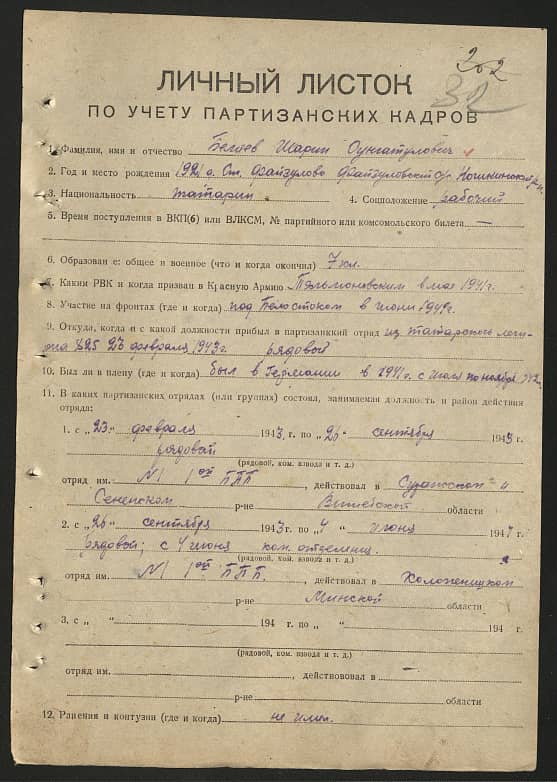 202
32
ЛИЧНЫЙ ЛИСТОК
ПО УЧЕТУ ПАРТИЗАНСКИХ КАДРОВ
1. Фамилия, имя и отчество Шарип
2. Год и место рождения 1921 г. Файзулово
3. Национальность татарин 4. Соцположение рабочий
5. Время поступления в ВКП(б) или ВЛКСМ, № партийного или комсомольского билета —
6. Образование: общее и военное (что и когда окончил) 7 кл.
7. Каким РВК и когда призван в Красную Армию в мае 1941 г.
8. Участие на фронтах (где и когда) под Белостоком в июне 1941 г.
9. Откуда, когда и с какой должности прибыл в партизанский отряд из татарского леги-
она 825 23 февраля 1943 г. рядовой
10. Был ли в плену (где и когда) был в Германии в 1941 г. с июля по ноябрь 1942
11. В каких партизанских отрядах (или группах) состоял, занимаемая должность и район действия
отряда:
1. с „23" февраля 1943 г. по „26" сентября 1943 г.
рядовой
(рядовой, ком. взвода и т. д.)
отряд им. №1 1ой ПТП, действовал в Суражском и
Сененском р-не Витебской области
2. с „26" сентября 1943 г. по „4" июня 194 г.
рядовой; с 4 июня ком. отделения.
(рядовой, ком. взвода и т. д.)
отряд им. №1 1ой ПТП, действовал в Холопеничском
р-не Минской области
3. с „ " 194 г. по „ " 194 г.
(рядовой, ком. взвода и т. д.)
отряд им. , действовал в —
р-не области
12. Ранения и контузии (где и когда) не имел.